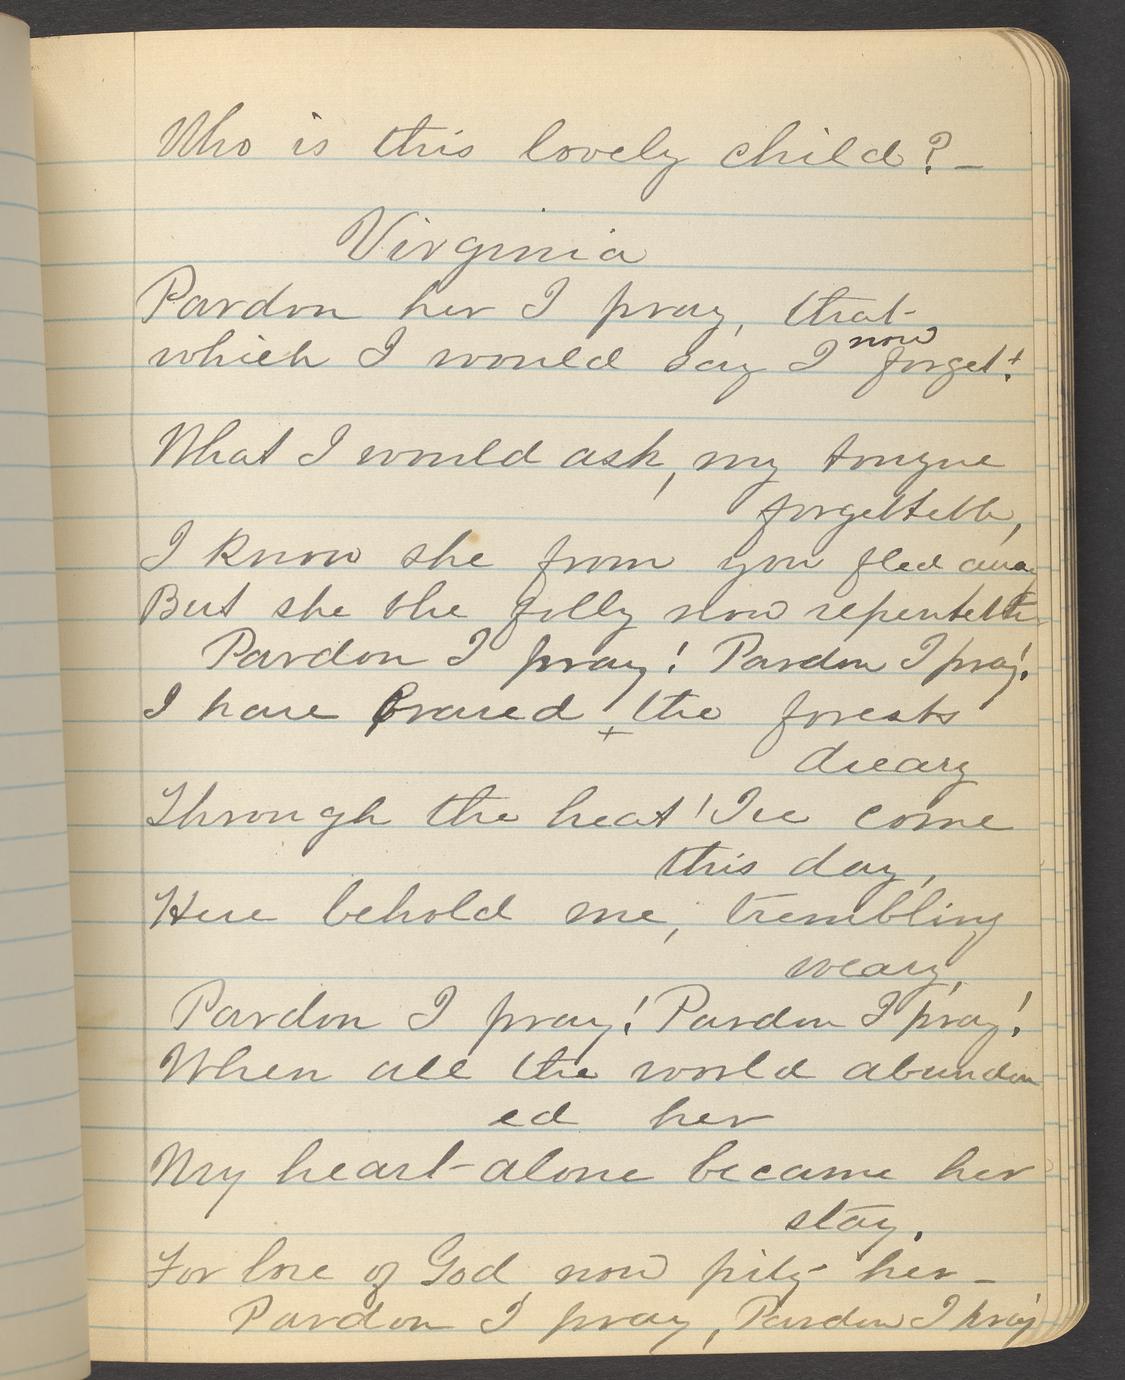 Who is this lovely child? –
Virginia
Pardon her I pray, that
which I would say I now forget!
What I would ask, my tongue
forgetteth,
I know she from you fled away
But she the folly now repenteth
Pardon I pray! Pardon I pray!
I have braved + the forests
dreary
Through the heat I've come
this day,
Here behold me, trembling
weary,
Pardon I pray! Pardon I pray!
When all the world abandon
ed her
My heart alone became her
stay.
For love of God now pity her –
Pardon I pray, Pardon I pray